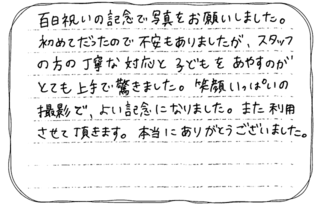 百日祝いの記念で写真をお願いしました。
初めてだったので不安もありましたが、スタッフ
の方の丁寧な対応と子どもをあやすのが
とても上手で驚きました。笑顔いっぱいの
撮影で、よい記念になりました。また利用
させて頂きます。本当にありがとうございました。